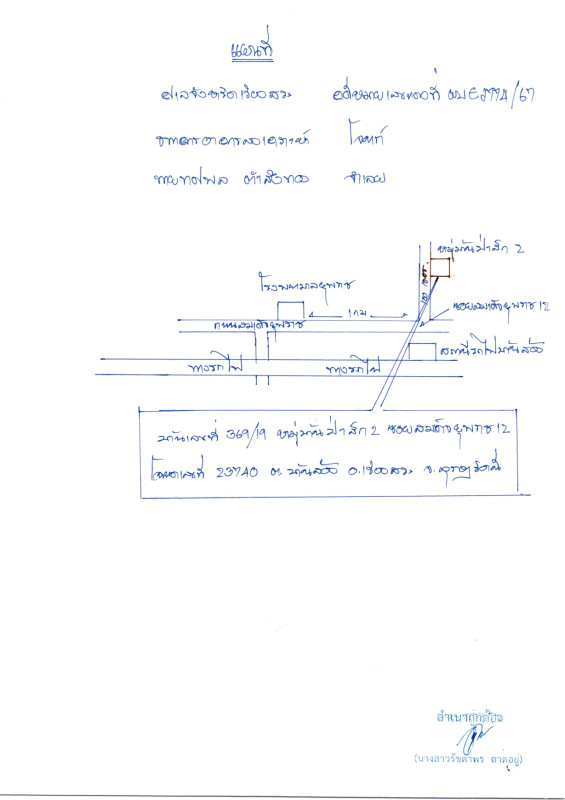 แผนที่
ศาลจังหวัดเวียงสระ คดีหมายเลขแดงที่ ผบE
ธนาคารอาคารสงเคราะห์ โจทก์
นายทศพล จำเลย
หมู่บ้านป่าสัก 2
โรงพยาบาลยุพราช
1 กม
ซอยสมเด็จยุพราช 12
ถนนสมเด็จยุพราช
สถานีรถไฟบ้านส้อง
ทางรถไฟ ทางรถไฟ
บ้านเลขที่ 369/19 หมู่บ้านป่าสัก 2 ซอยสมเด็จยุพราช 12
โฉนดเลขที่ 23740 ต.บ้านส้อง อ.เวียงสระ จ.สุราษฎร์ธานี
สำเนาถูกต้อง
(นางสาวรัชดาพร